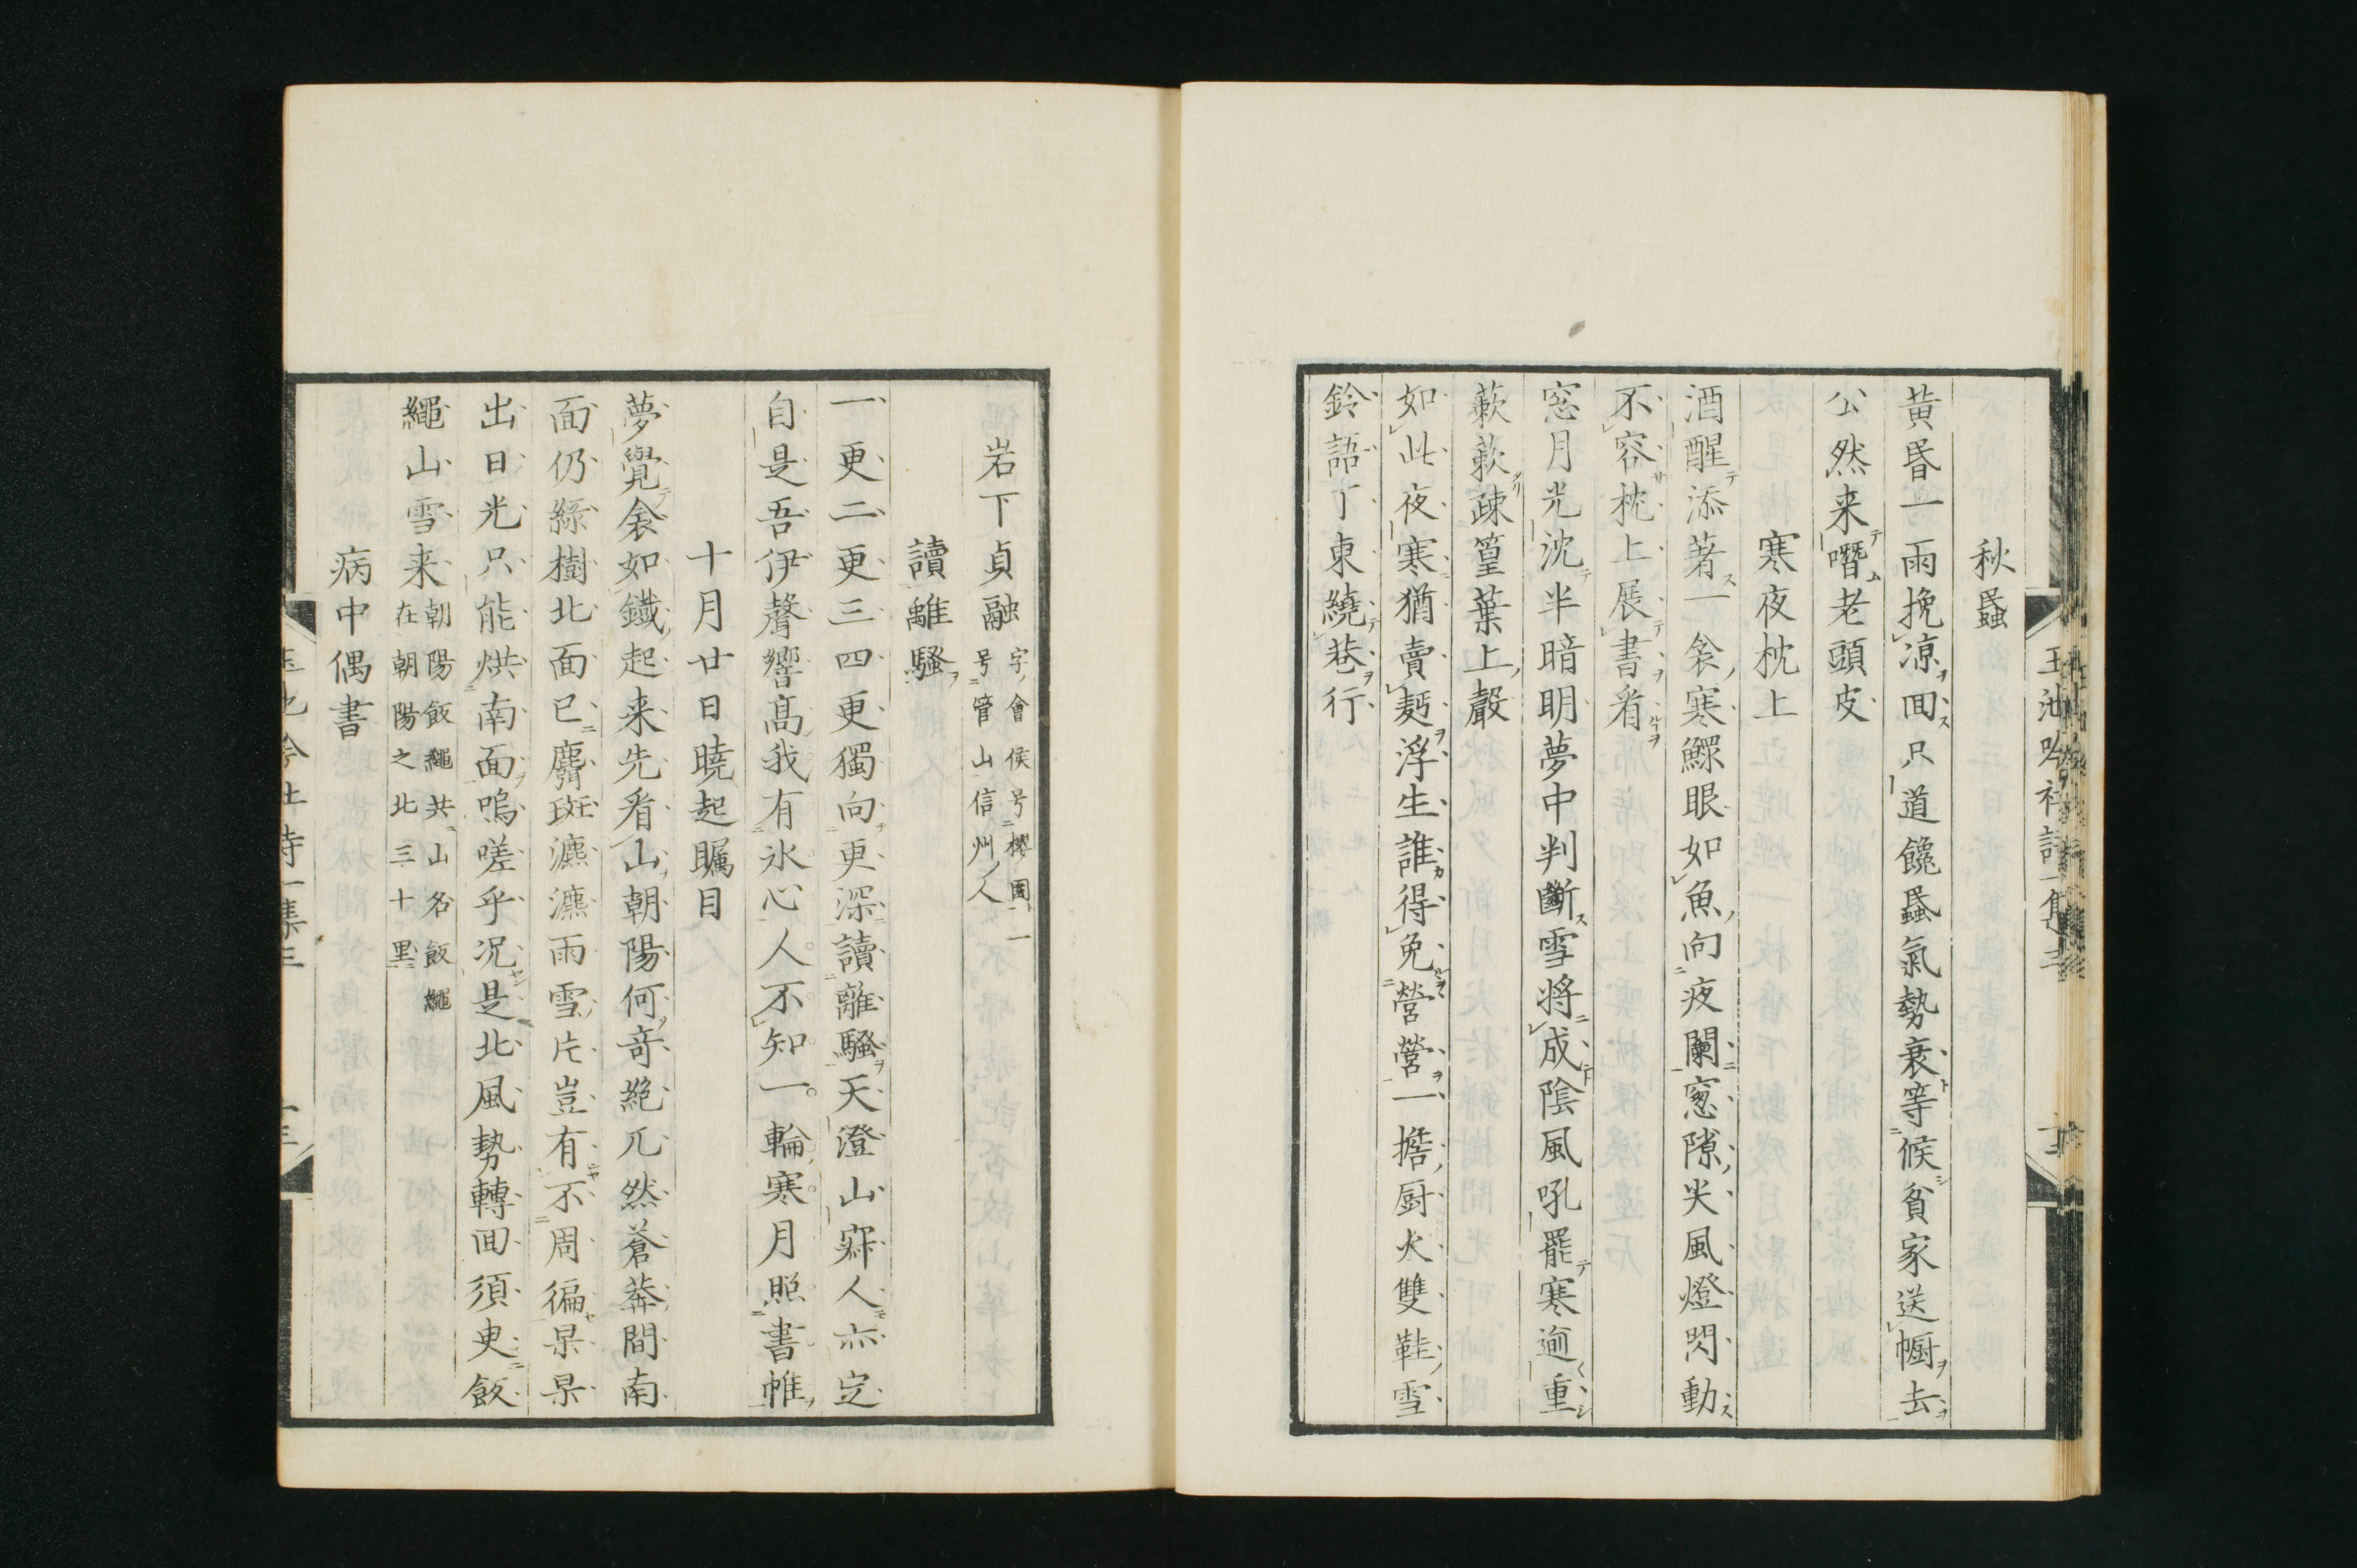 秋蟁
黄昏一雨挽凉回只道饞蟁氣勢衰等候貧家送幮去
公然来噆老頭皮
寒夜枕上
酒醒添著一衾寒鰥眼如魚向夜闌窓隙尖風燈閃動
不容枕上展書看
窓月光沈半暗明夢中判斷雪将成陰風吼罷寒逾重
蔌蔌疎篁葉上聲
如此夜寒猶賣麪浮生誰得免營營一擔厨火雙鞋雪
鈴語丁東繞巷行
岩下貞融
字會侯号櫻園一
号管山信州人
讀離騷
一更二更三四更獨向更深讀離騷天澄山寂人亦定
自是吾伊聲響高我有氷心人不知一輪寒月照書帷
十月廿日曉起矚目
夢覺衾如鐵起来先看山朝陽何竒絶兀然蒼莽間南
面仍綠樹北面已麝斑瀌瀌雨雪片豈有不周徧杲杲
出日光只能烘南面嗚嗟乎况是北風勢轉回須臾飯
繩山雪来
朝陽飯繩共山名飯繩
在朝陽之北三十里
病中偶書